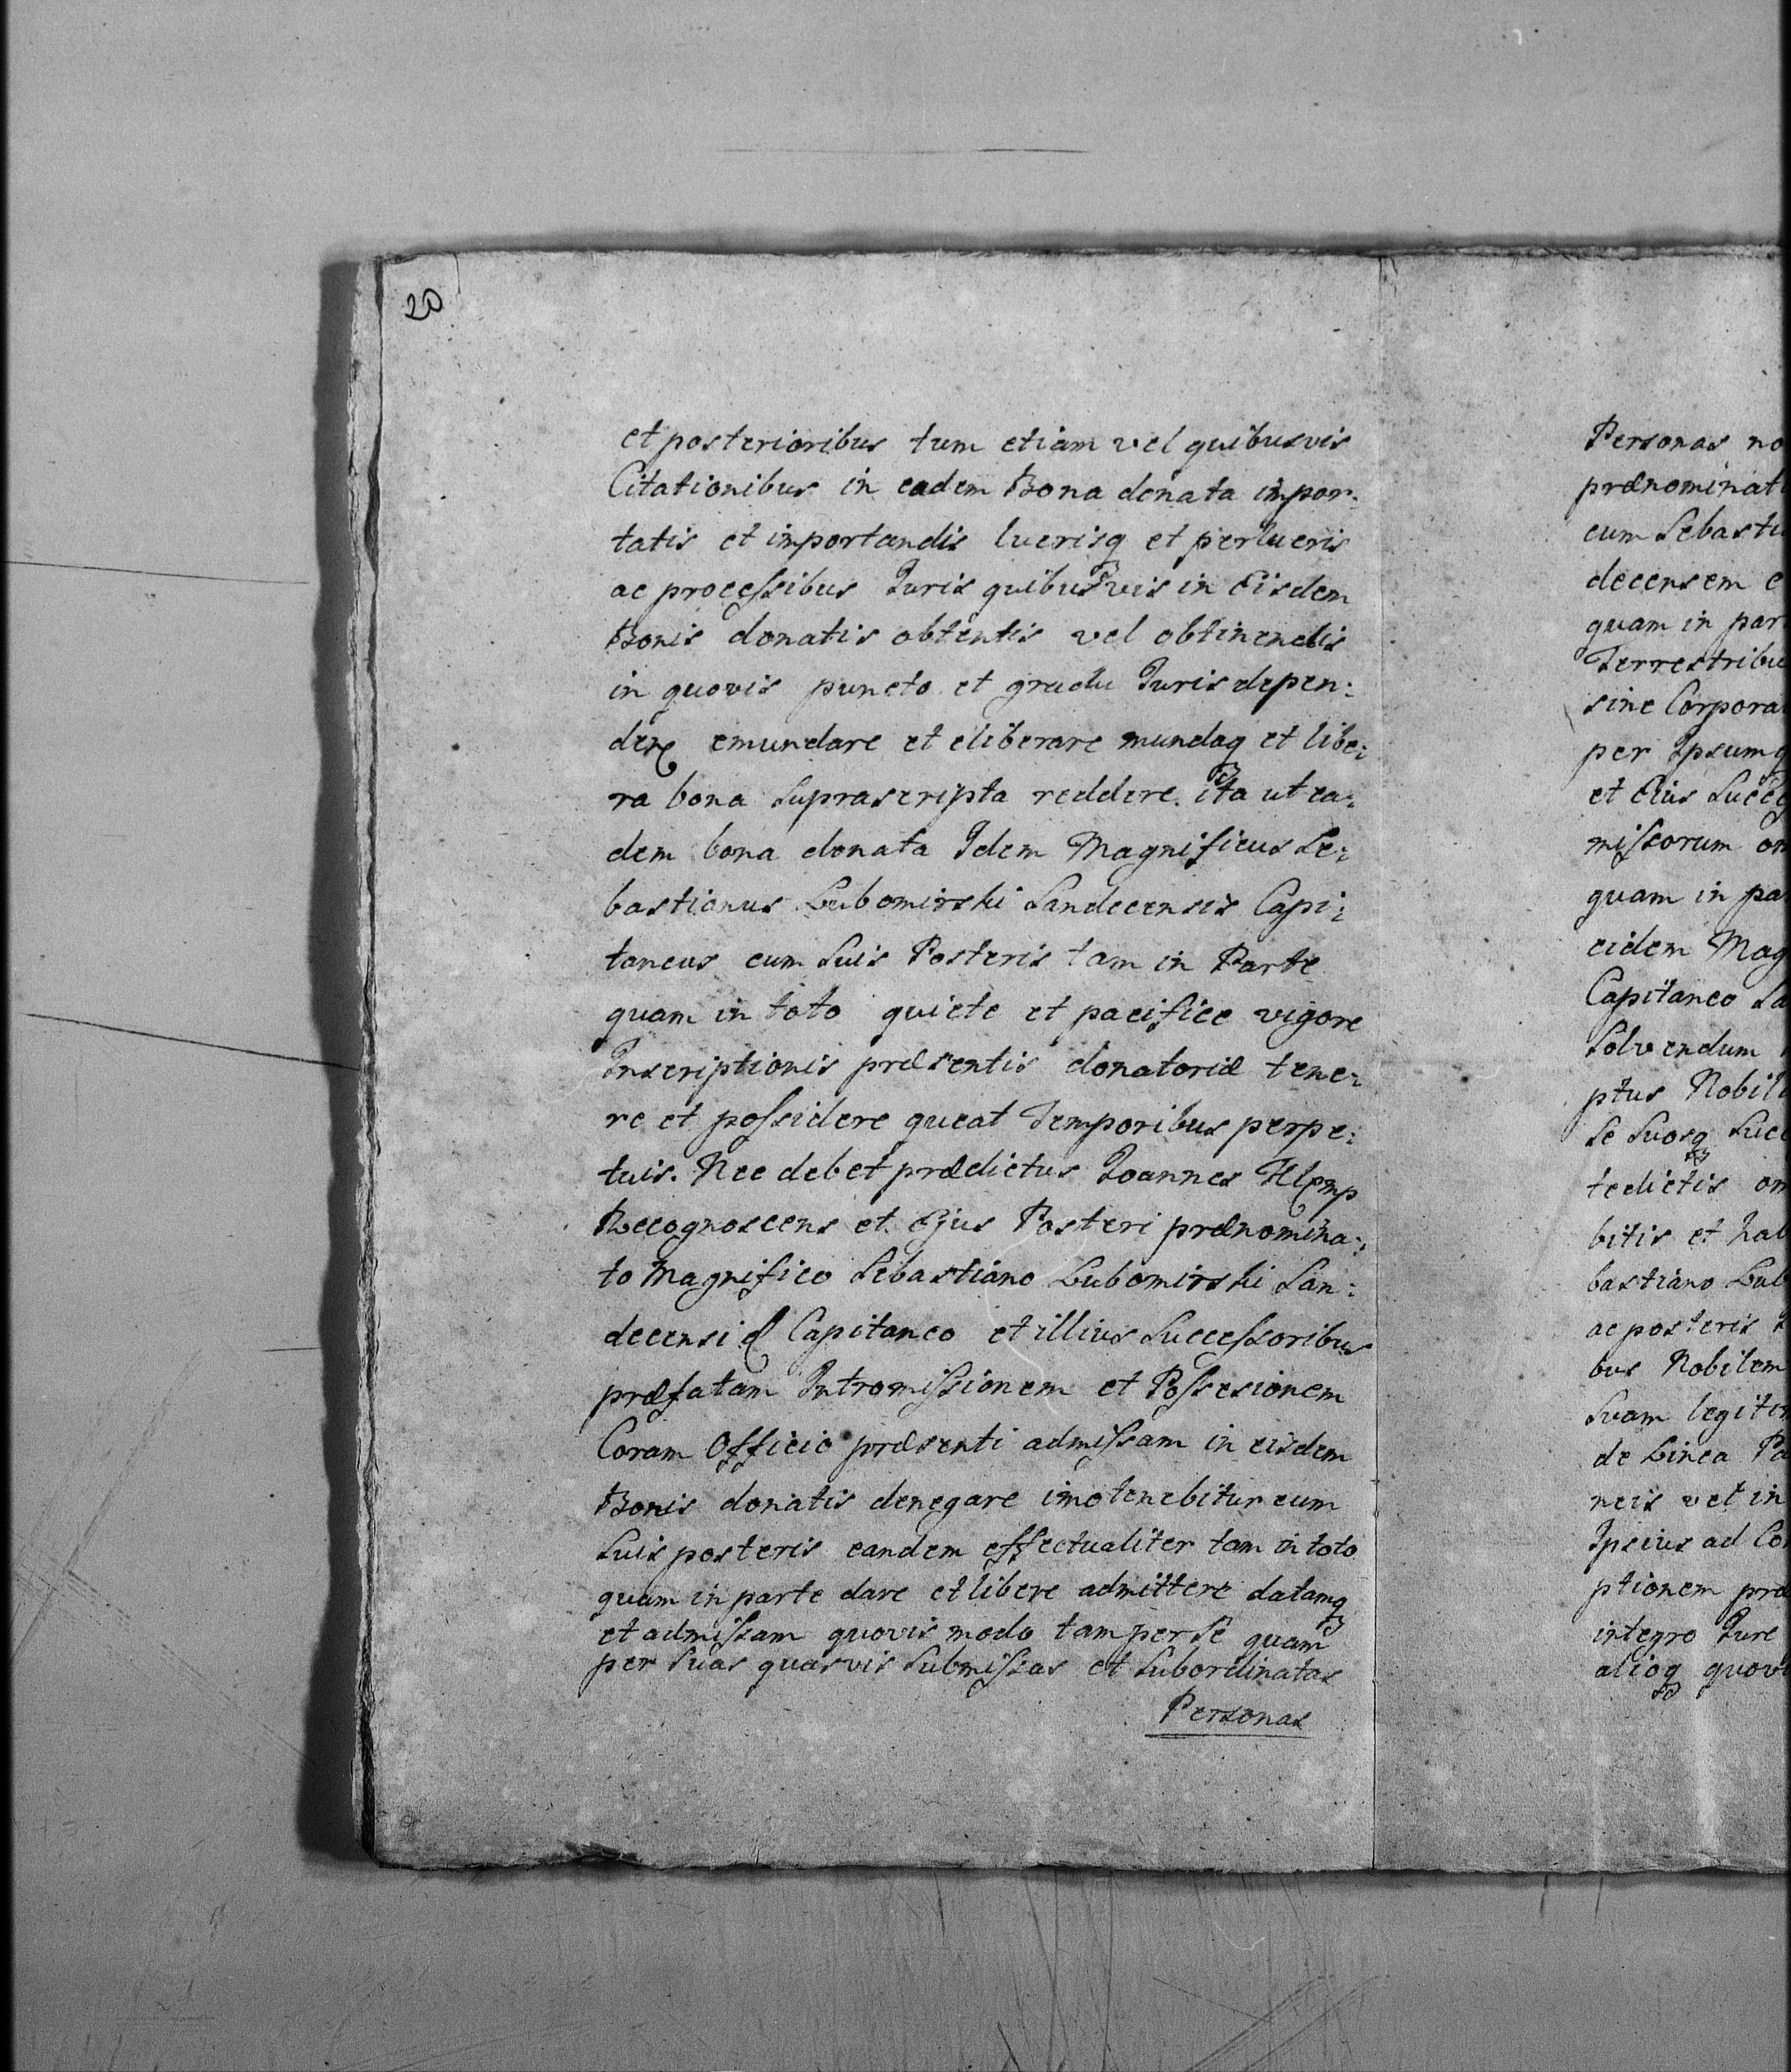 20
et posterioribus tum etiam vel quibusvis
Citationibus in eadem Bona donata impor:
tatis et importandis lucrisq et perlucris
ac processibus Juris quibusvis in Eisdem
Bonis donatis obtentis vel obtinendis
in quovis puncto et gradu Juris depen:
dere emundare et eliberare mundaq et libe:
ra bona Suprascripta reddere. ita ut ea:
dem bona donata Idem Magnificus Se:
bastianus Lubomirski Sandecensis Capi:
taneus cum Suis Posteris tam in Parte
quam in toto quiete et pacifice vigore
Inscriptionis præsentis donatoriæ tene:
re et possidere queat Temporibus perpe:
tuis. Nec debet prædictus Joannes
Recognoscens et Ejus Posteri prænomina:
to Magnifico Sebastiano Lubomirski San:
decensi Capitaneo et illius Successoribus
præfatam Intromissionem et Possesionem
Coram Officio præsenti admissam in eisdem
Bonis donatis denegare imo tenebitur cum
Suis posteris eandem effectualiter tam in toto
quam in parte dare et libere admittere datamq
et admissam quovis modo tam per Se quam
per Suas quasvis Submissas et Subordinatas
Personas
Personas no
prænominat
cum Sebasti
decensem e
quam in par
Terrestribu
sine Corpora
per Ipsum q
et Eius Succ
missorum om
quam in pa
eidem Mag
Capitaneo Sa
Solvendum
ptus Nobili
Se Suosq Succ
tedictis om
bitis et hab
bastiano Lub
ac posteris
bus Nobilem
Suam legitim
de Linea Pa
neis vel in
Ipsius ad Co
ptionem præ
integro Jure
alioq quovi